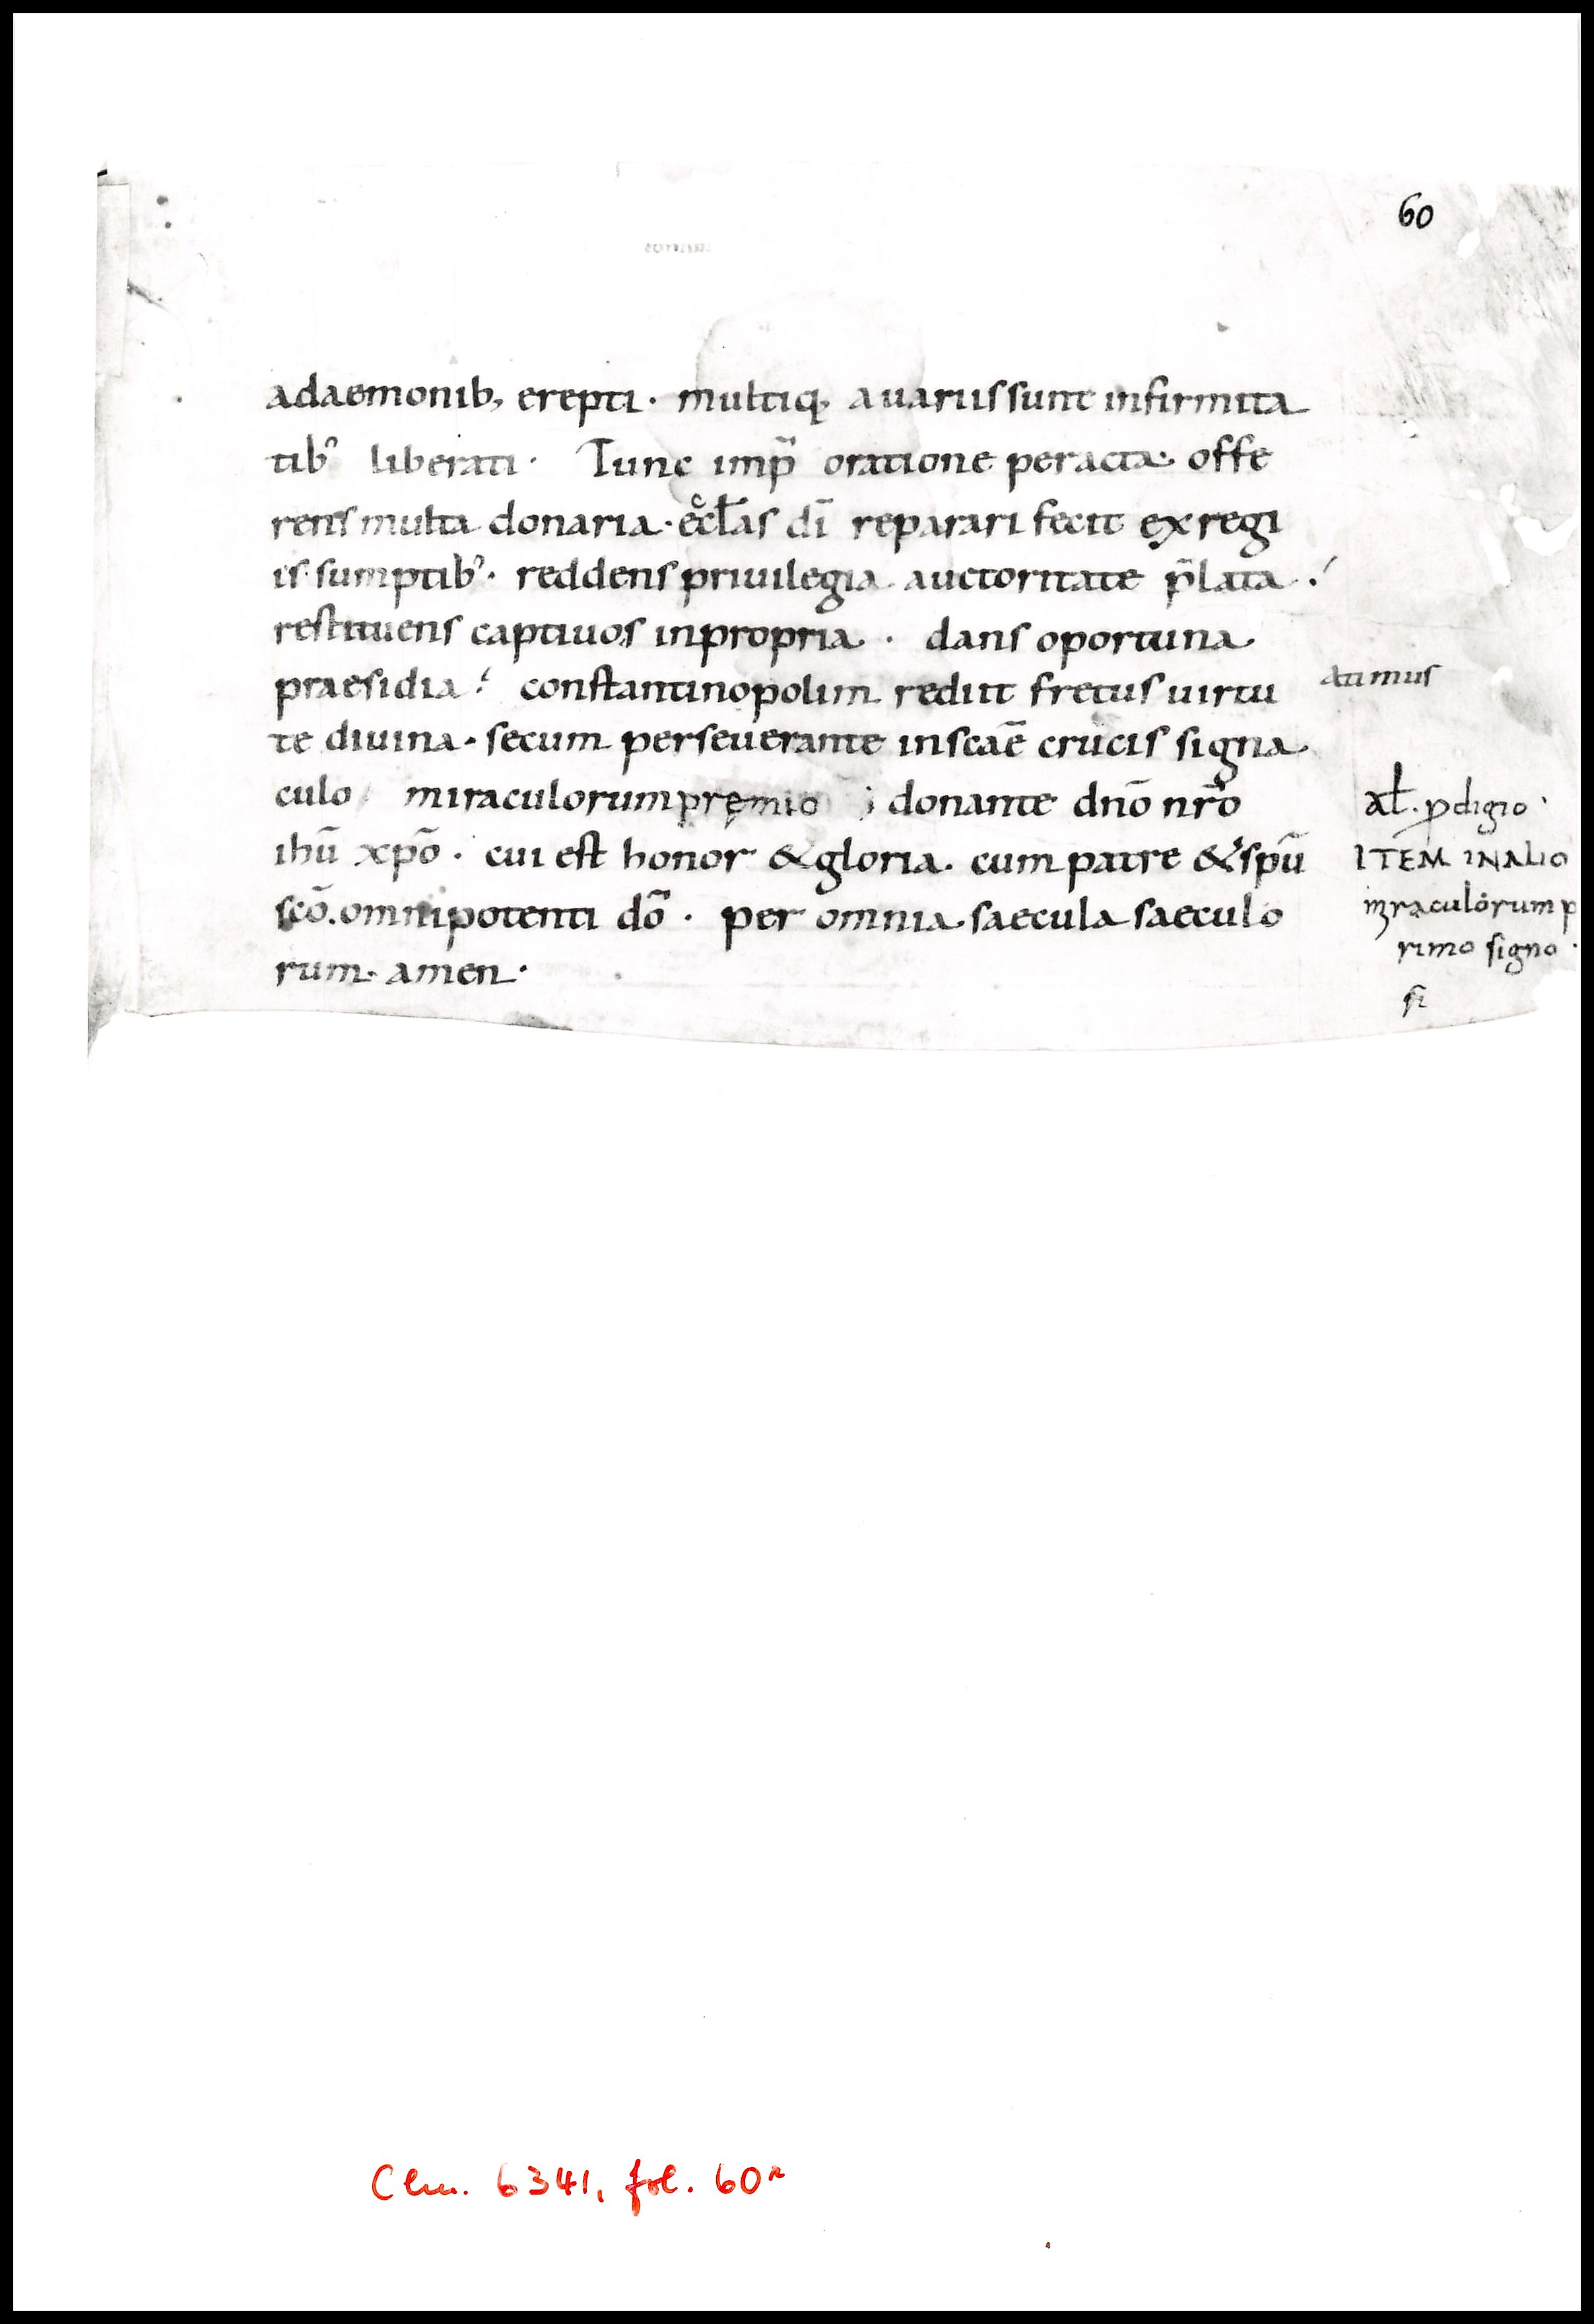 60
a daemonib, erepti · multiq, a variis sunt infirmita
tibꝰ liberati · Tunc imp̃ oratione peracta · offe
rens multa donaria · eccl̃as dī reparari fecit ex regi
is sumptibꝰ · reddens priuilegia auctoritate p̃lata ·
restituens captiuos in propria · dans oportuna
praesidia · constantinopolim rediit fretus uirtu
te diuina · secum perseuerante in scãe crucis signa
culo miraculorum pręmio donante dño nr̃o
ihū xpõ · cui est honor & gloria · cum patre & spũ
scõ · omnipotenti dõ · per omnia saecula saeculo
rum · amen ·
atimus
ał · ꝓdigio ·
ITEM IN ALIO
miraculorum p
rimo signo ·
Clm. 6341, fol. 60r